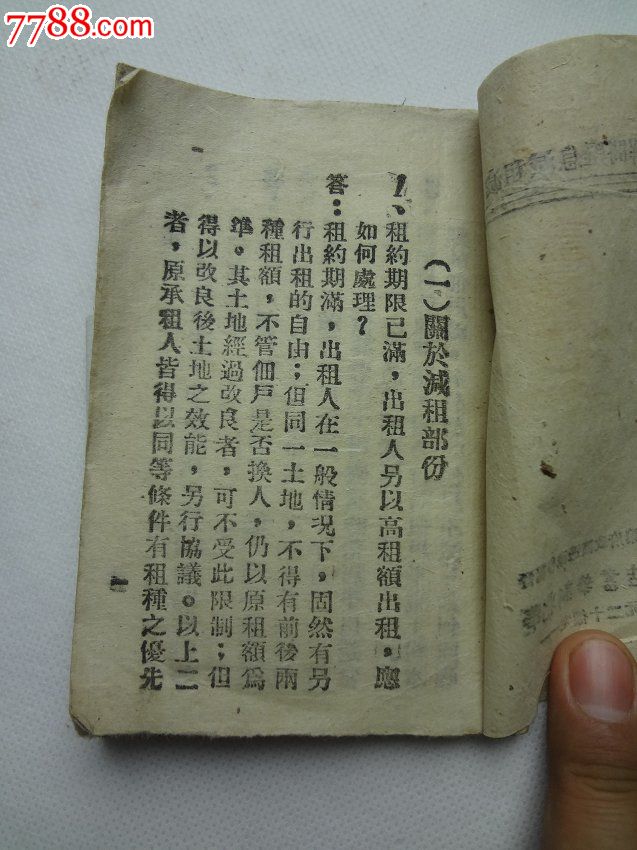 7788.com
(一)關於減租部份
1、租約期限已滿，出租人另以高租額出租，應
如何處理？
答：租約期滿，出租人在一般情况下，固然有另
行出租的自由；但同一土地，不得有前後兩
種租額，不管佃戶是否換人，仍以原租額爲
準。其土地經過改良者，可不受此限制；但
得以改良後土地之效能，另行協議。以上二
者，原承租人皆得以同等條件有租種之優先